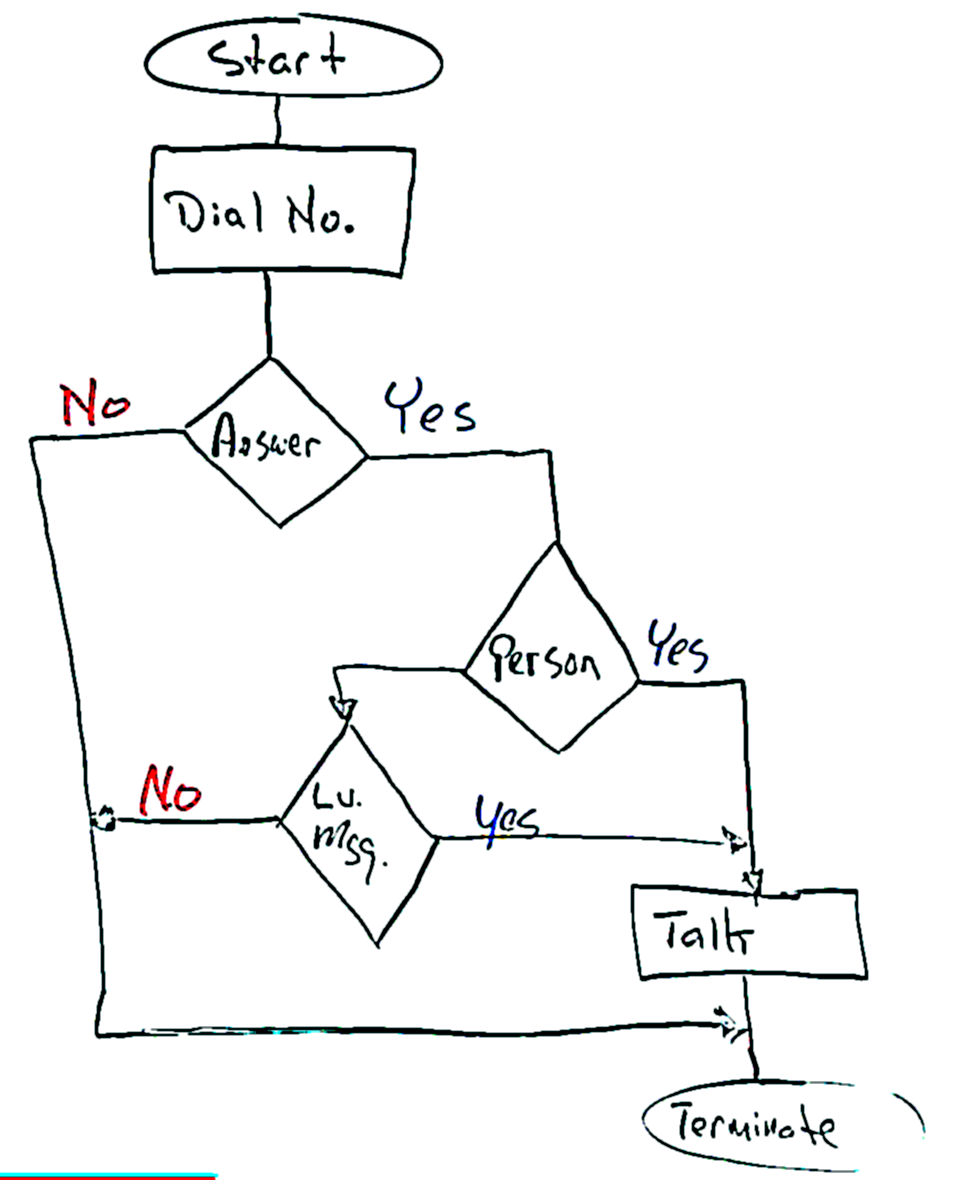 Start
Dial No.
No
Yes
Answer
Person
Yes
No
Lv.
Msg.
Yes
Talk
Terminate